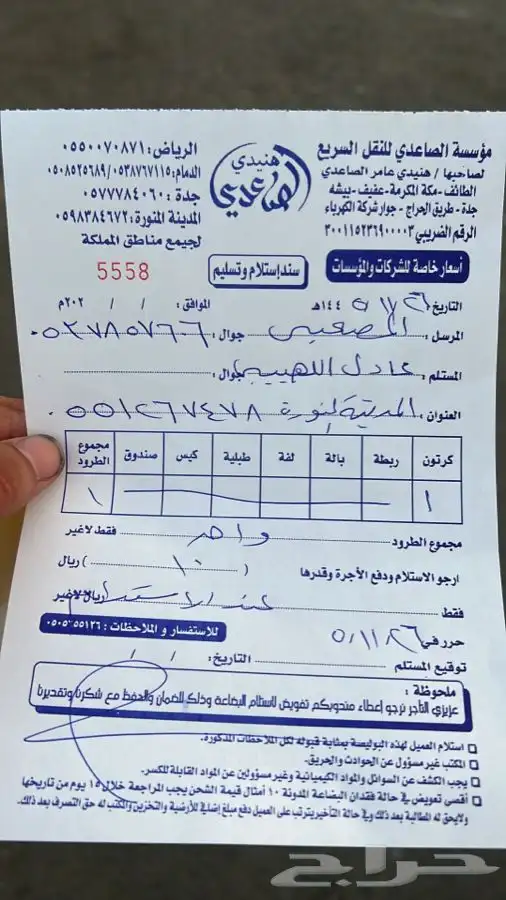 مؤسسة الصاعدي للنقل السريع
لصاحبها / هنيدي عامر الصاعدي
الطائف - مكة المكرمة - عفيف - بيشه
جدة - طريق الحراج - جوار شركة الكهرباء
الرقم الضريبي ٣٠٠١١٥٢٣٦٩٠٠٠٠٣
هنيدي
الصاعدي
الرياض: ٠٥٥٠٠٧٠٨٧١
الدمام: ٠٥٠٨٥٢٥٦٨٩/٠٥٣٨٧٦٧١١٥
جدة : ٠٥٧٧٧٨٤٠٦٠
المدينة المنورة: ٠٥٩٨٣٨٤٦٧٢
لجيمع مناطق المملكة
أسعار خاصة للشركات والمؤسسات
سند إستلام وتسليم
5558
التاريخ ٢٦ / ١١ / ١٤٤٥هـ الموافق: / / ٢٠٢م
المرسل : جوال: ٠٥٣٧٨٥٧٦٠٦
المستلم : عادل اللهيبي جوال:
العنوان: المدينة المنورة ٠٥٥١٢٦٧٤٧٨
كرتون ربطة بالة لفة طبلية كيس صندوق مجموع الطرود
١ ١
مجموع الطرود واحد فقط لاغير
ارجو الاستلام ودفع الأجرة وقدرها ( ١٠ ) ريال
فقط عند الاستلام ريال لاغير
حرر في ٢٦ / ١١ / ٥
للاستفسار و الملاحظات :
توقيع المستلم التاريخ: / /
ملحوظة :
عزيزي التاجر نرجو إعطاء مندوبكم تفويض لاستلام البضاعة وذلك للضمان والحفظ مع شكرنا وتقديرنا
استلام العميل لهذه البوليصة بمثابة قبوله لكل الملاحظات المذكورة.
المكتب غير مسؤول عن الحوادث والحريق.
يجب الكشف عن السوائل والمواد الكيميائية وغير مسؤولين عن المواد القابلة للكسر.
أقصى تعويض في حالة فقدان البضاعة المدونة ١٠ أمثال قيمة الشحن يجب المراجعة خلال ١٥ يوم من تاريخها
ولايحق له المطالبة بعد ذلك وفي حالة التأخير يترتب على العميل دفع مبلغ إضافي للأرضية والتخزين والمكتب له حق التصرف بعد ذلك.
حراج